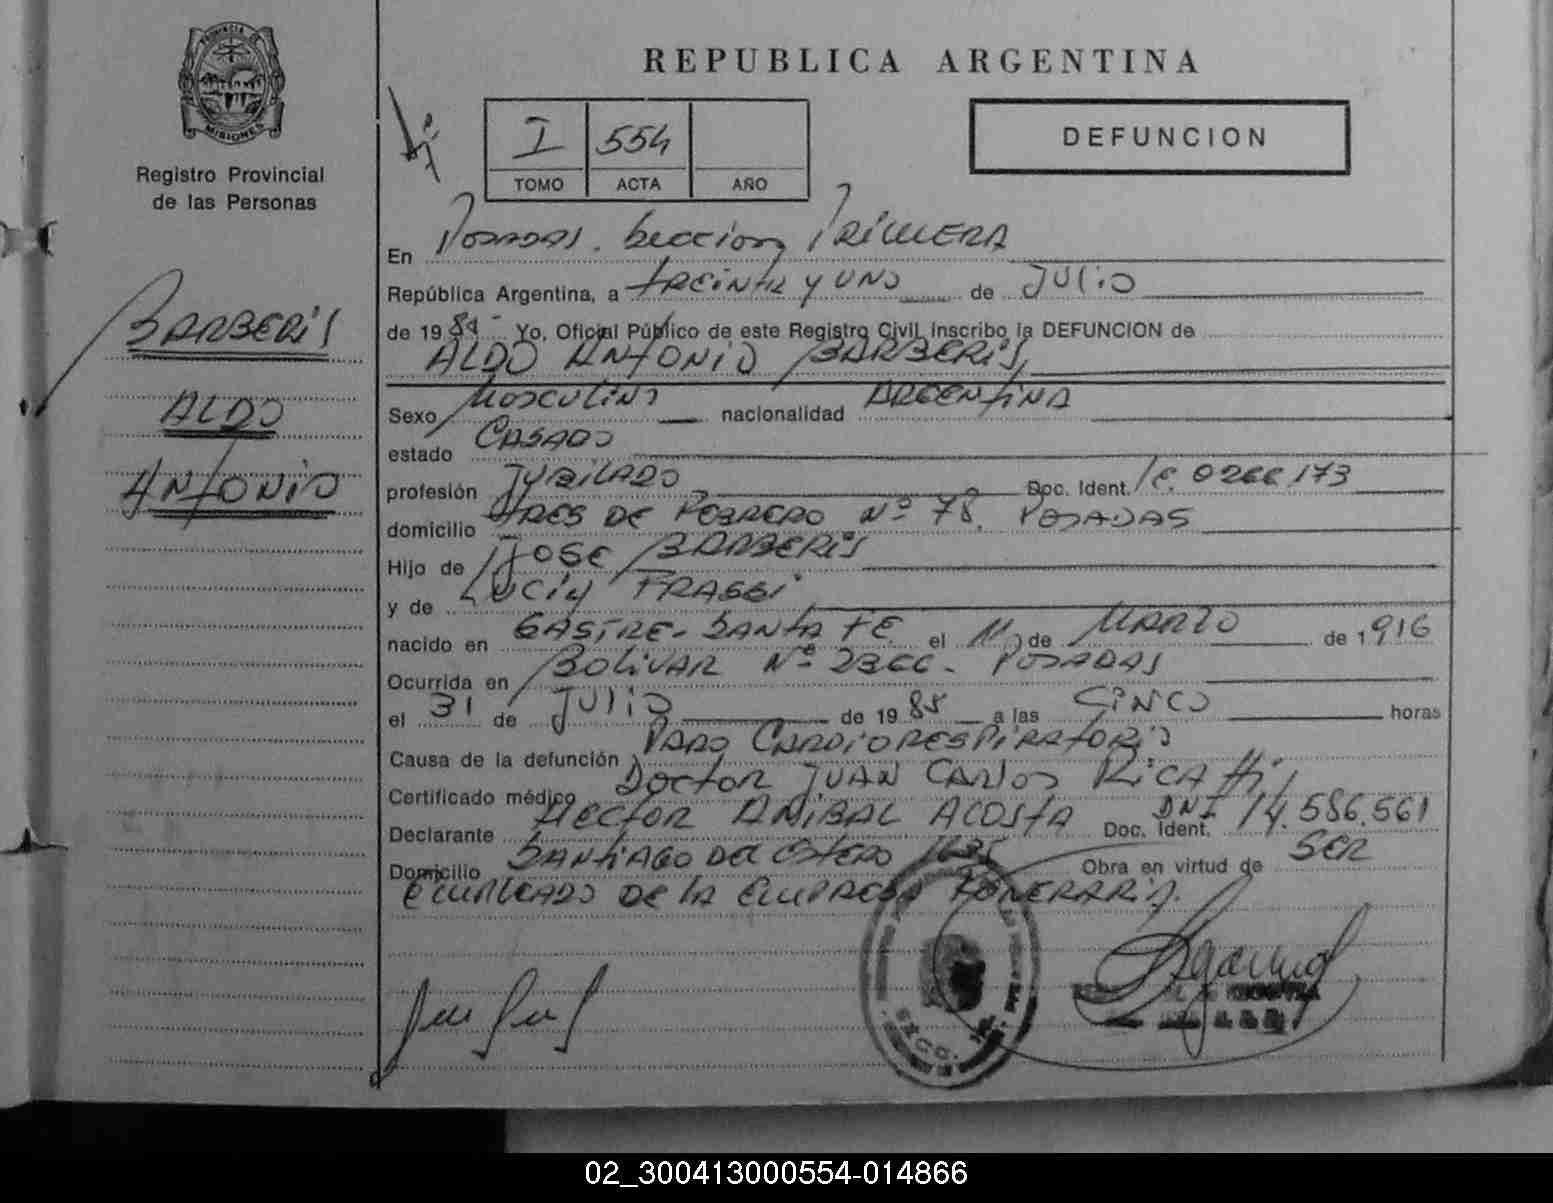 PROVINCIA DE
MISIONES
Registro Provincial
de las Personas
BARBERIS
ALDO
ANTONIO
REPUBLICA ARGENTINA
I 554
TOMO ACTA AÑO
DEFUNCION
En POSADAS. Seccion PRIMERA
República Argentina, a treinta y uno de Julio
de 19 Yo, Oficial Público de este Registro Civil inscribo la DEFUNCION de
ALDO ANTONIO BARBERIS
Sexo Masculino nacionalidad ARGENTINA
estado CASADO
profesión JUBILADO Doc. Ident.
domicilio Nº 78. POSADAS
Hijo de JOSE BARBERIS
y de LUCIA
nacido en SANTA FE el de MARZO de 1916
Ocurrida en BOLIVAR Nº POSADAS
el 31 de JULIO de 1985 a las CINCO horas
Causa de la defunción PARO CARDIORESPIRATORIO
Certificado médico Doctor JUAN CARLOS
Declarante HECTOR ANIBAL ACOSTA Doc. Ident. DNI 14.586.561
Domicilio SANTIAGO DEL ESTERO Obra en virtud de SER
EMPLEADO DE LA EMPRESA FUNERARIA.
02_300413000554-014866